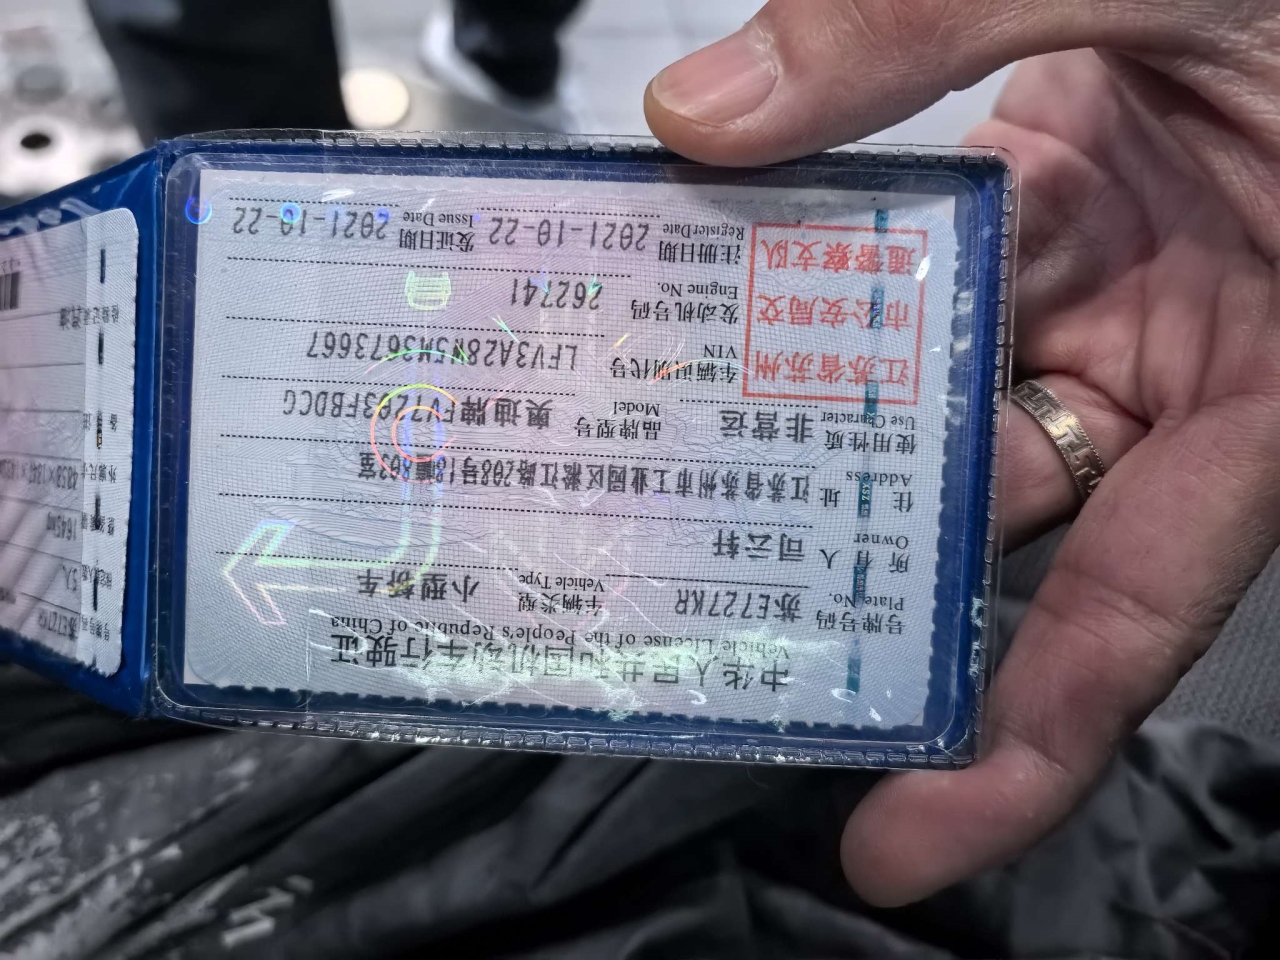 中华人民共和国机动车行驶证
Vehicle License of the People's Republic of China
号牌号码 苏E727KR 车辆类型 小型轿车
Plate No. Vehicle Type
所有人 司云轩
Owner
住址 江苏省苏州市工业园区淞江路208号18幢803室
Address
使用性质 非营运 品牌型号 奥迪牌
Use Character Model
江苏省苏州
市公安局交
通警察支队
车辆识别代号 LFV3A28W3M3673667
VIN
发动机号码 262741
Engine No.
注册日期 2021-10-22 发证日期 2021-10-22
Register Date Issue Date
号牌号码 苏E727KR
5人